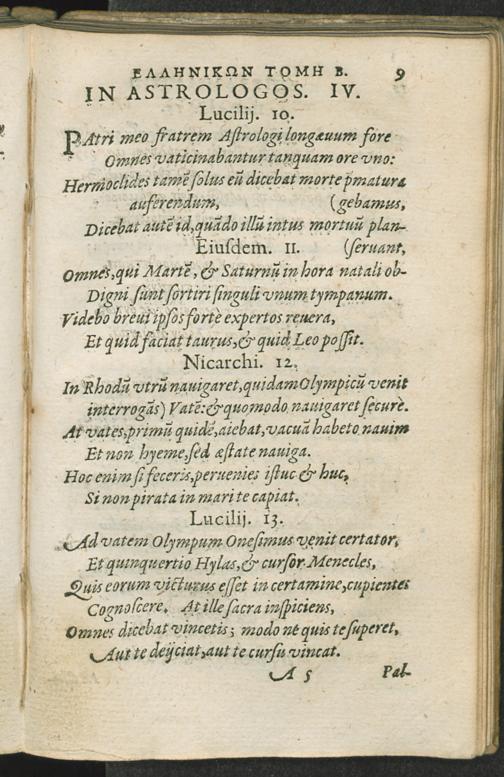 ΕΛΛΗΝΙΚΩΝ ΤΟΜΗ Β. 9
IN ASTROLOGOS. IV.
Lucilij. 10.
PAtri meo fratrem Astrologi longæuum fore
Omnes vaticinabantur tanquam ore vno:
Hermoclides tamē solus eū dicebat morte p̄matura
auferendum, (gebamus,
Dicebat autē id, quādo illū intus mortuū plan-
Eiusdem. 11. (seruant,
Omnes, qui Martē, & Saturnū in hora natali ob-
Digni sunt sortiri singuli vnum tympanum.
Videbo breui ipsos fortè expertos reuera,
Et quid faciat taurus, & quid Leo possit.
Nicarchi. 12.
In Rhodū vtrū nauigaret, quidam Olympicū venit
interrogās) Vatē: & quomodo nauigaret securè.
At vates, primū quidē, aiebat, vacuā habeto nauim
Et non hyeme, sed æstate nauiga.
Hoc enim si feceris, peruenies istuc & huc,
Si non pirata in mari te capiat.
Lucilij. 13.
Ad vatem Olympum Onesimus venit certator,
Et quinquertio Hylas, & cursor Menecles,
Quis eorum victurus esset in certamine, cupientes
Cognoscere. At ille sacra inspiciens,
Omnes dicebat vincetis; modo ne quis te superet,
Aut te deijciat, aut te cursu vincat.
A 5 Pal-